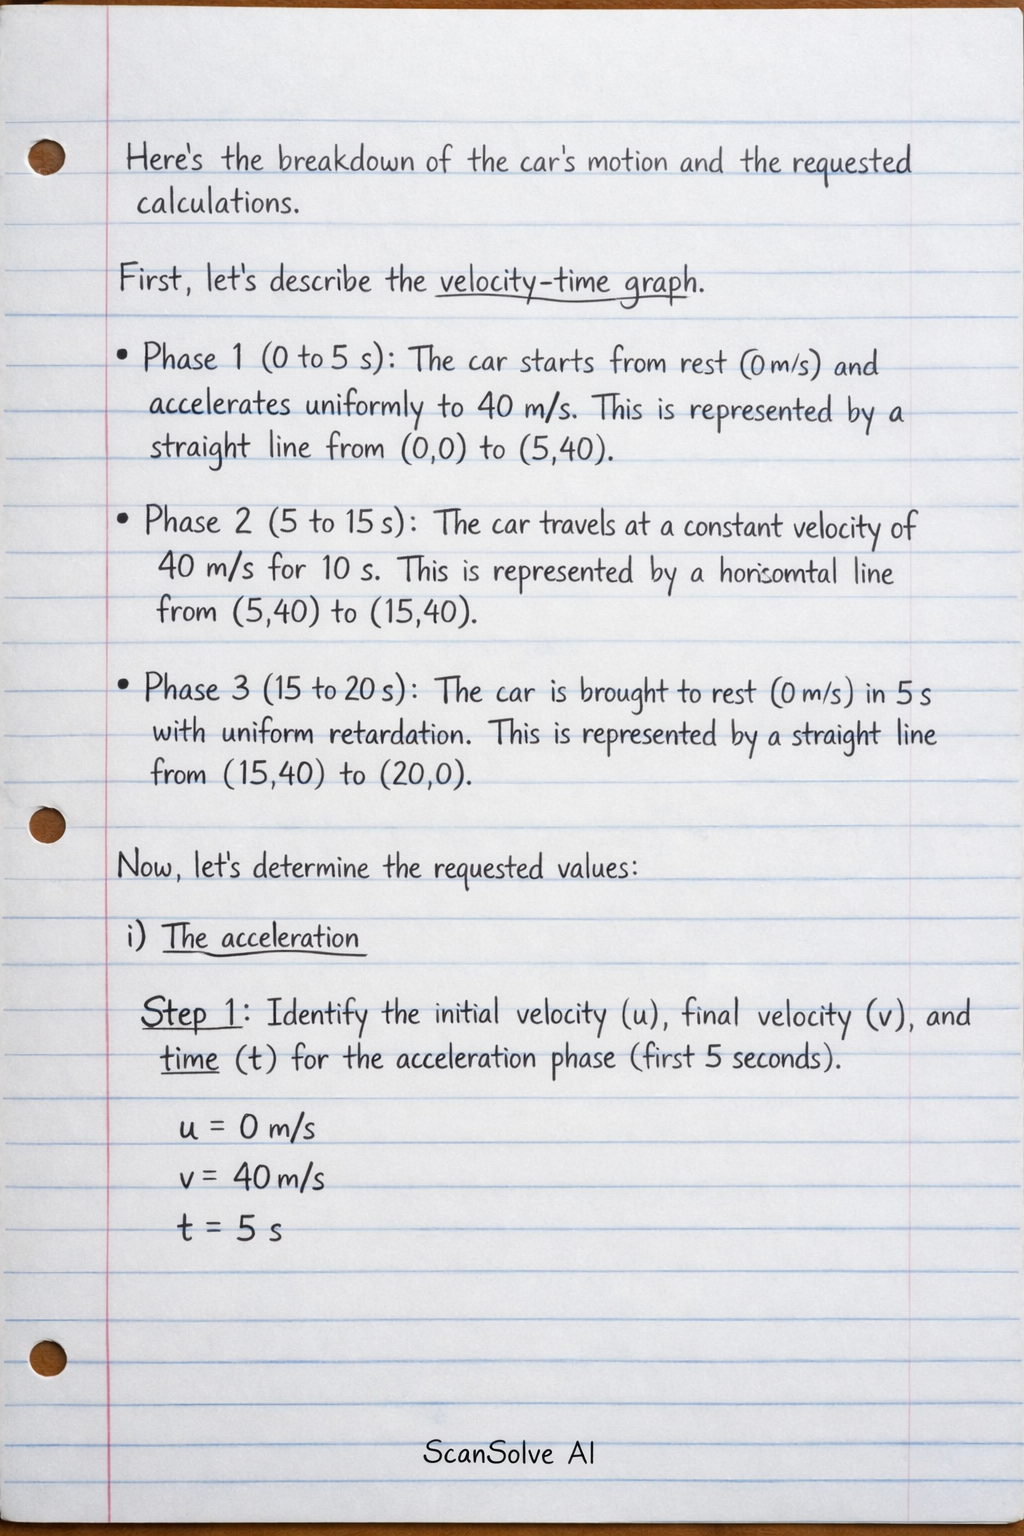 Here's the breakdown of the car's motion and the requested
calculations.
First, let's describe the velocity-time graph.
• Phase 1 (0 to 5 s): The car starts from rest (0 m/s) and
accelerates uniformly to 40 m/s. This is represented by a
straight line from (0,0) to (5,40).
• Phase 2 (5 to 15 s): The car travels at a constant velocity of
40 m/s for 10 s. This is represented by a horisomtal line
from (5,40) to (15,40).
• Phase 3 (15 to 20 s): The car is brought to rest (0 m/s) in 5 s
with uniform retardation. This is represented by a straight line
from (15,40) to (20,0).
Now, let's determine the requested values:
i) The acceleration
Step 1: Identify the initial velocity (u), final velocity (v), and
time (t) for the acceleration phase (first 5 seconds).
u = 0 m/s
v = 40 m/s
t = 5 s
ScanSolve AI